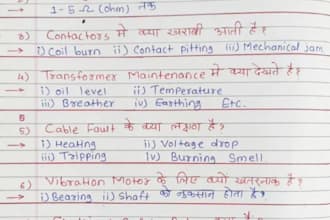 → 1-5-Ω (ohm) तक
3) Contactors में क्या खराबी आती है?
→ i) Coil burn ii) Contact pitting iii) Mechanical jam
4) Transformer Maintenance में क्या देखते हैं?
→ i) oil level ii) Temperature
iii) Breather iv) Earthing Etc.
5) Cable Fault के क्या लक्षण है?
→ i) Heating ii) Voltage drop
iii) Tripping iv) Burning Smell
6) Vibration Motor के लिए क्यों खतरनाक है?
→ i) Bearing ii) Shaft को नुकसान होता है?